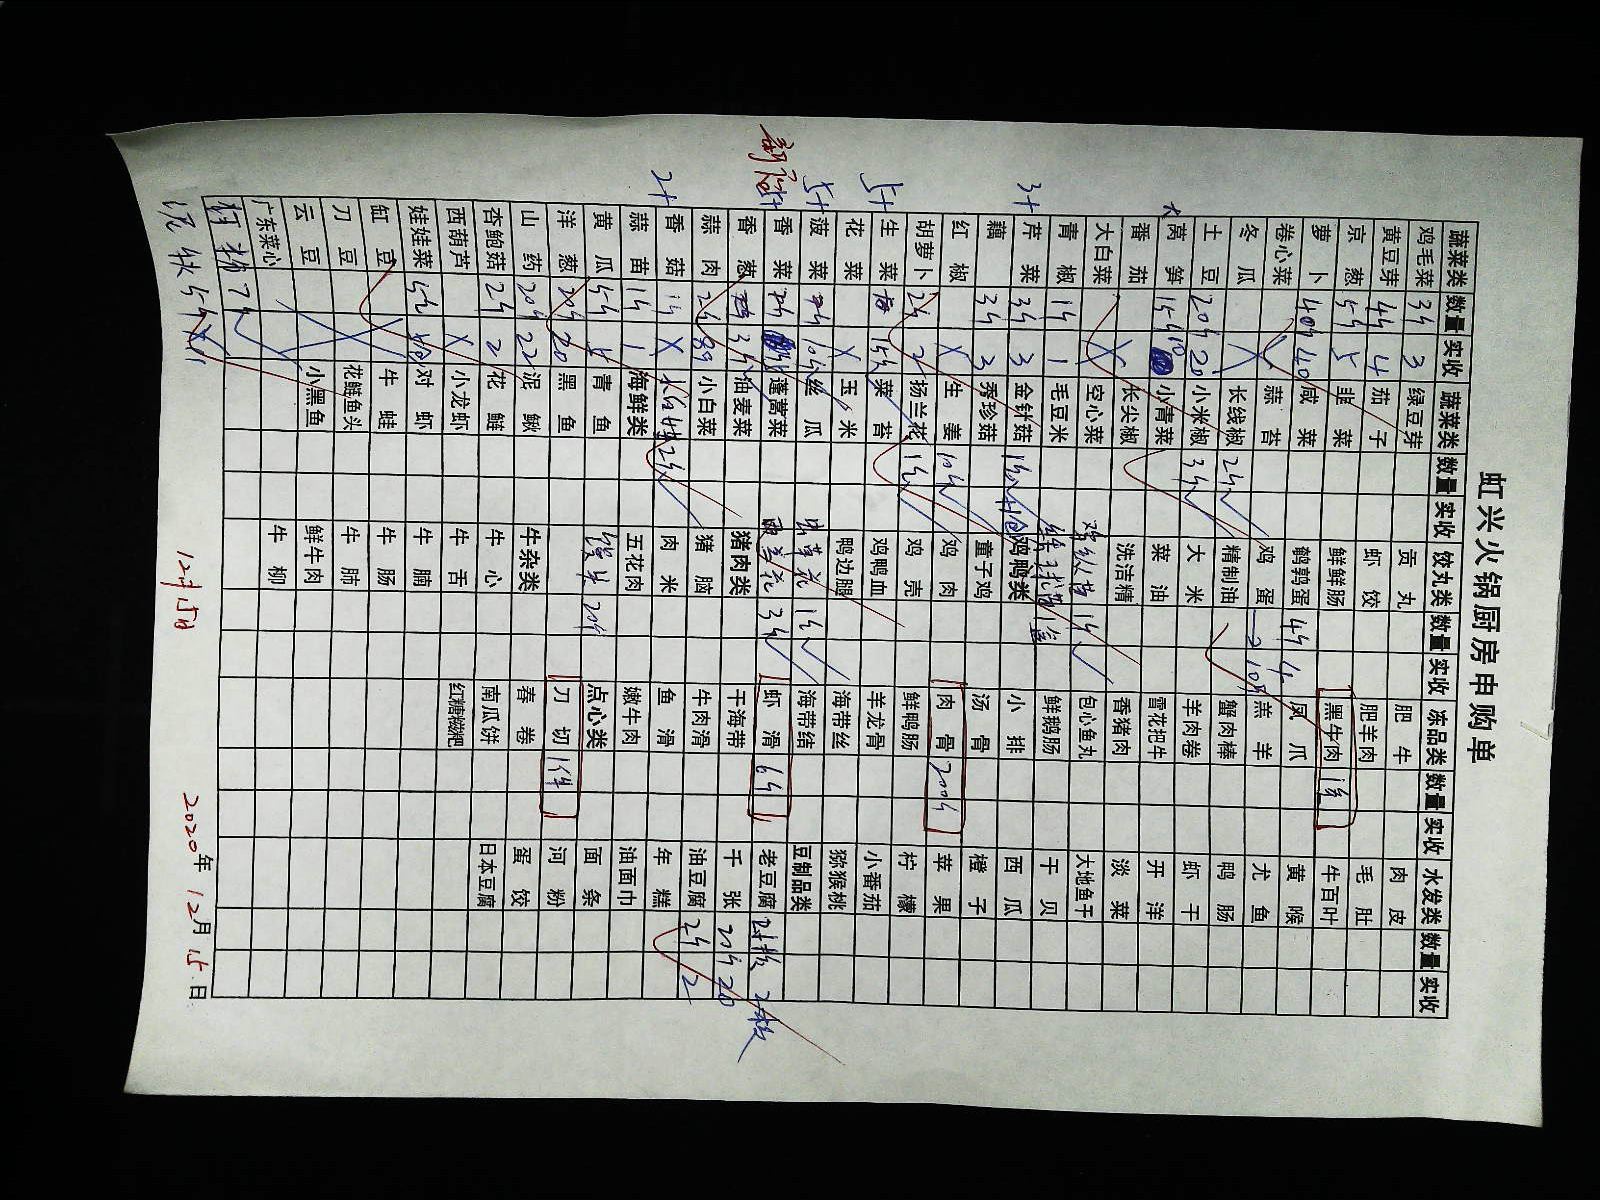 虹兴火锅厨房申购单
蔬菜类 数量 实收 蔬菜类 数量 实收 饺丸类 数量 实收 冻品类 数量 实收 水发类 数量 实收
鸡毛菜 3斤 3 绿豆芽 贡丸 肥牛 肉皮
黄豆芽 4斤 4 茄子 虾饺 肥羊肉 毛肚
京葱 5斤 5 韭菜 鲜鲜肠 黑牛肉 牛百叶
萝卜 40斤 40 咸菜 鹌鹑蛋 4斤 4 凤爪 黄喉
卷心菜 蒜苔 鸡蛋 羔羊 尤鱼
冬瓜 长线椒 2斤 精制油 蟹肉棒 鸭肠
土豆 20斤 20 小米椒 3斤 大米 羊肉卷 虾干
莴笋 15斤 10 小青菜 菜油 雪花把牛 开洋
番茄 长尖椒 洗洁精 香猪肉 淡菜
大白菜 空心菜 1斤 包心鱼丸 大地鱼干
青椒 1斤 1 毛豆米 鲜鹅肠 干贝
3斤 芹菜 3斤 3 金针菇 鸡鸭类 小排 西瓜
藕 3斤 3 秀珍菇 童子鸡 汤骨 橙子
红椒 生姜 10斤 鸡肉 肉骨 200斤 苹果
胡萝卜 2斤 2 杨兰花 1斤 鸡壳 鲜鸭肠 柠檬
5斤 生菜 菜苔 鸡鸭血 羊龙骨 小番茄
花菜 玉米 鸭边腿 海带丝 猕猴桃
5斤 菠菜 丝瓜 虫草花 1斤 海带结 豆制品类
香菜 蓬蒿菜 3斤 虾滑 6斤 老豆腐 2板 2板
香葱 3斤 油麦菜 猪肉类 干海带 千张 20斤 20
蒜肉 2斤 小白菜 猪脑 牛肉滑 油豆腐 2斤 2
2斤 香菇 2斤 肉米 鱼滑 年糕
蒜苗 1斤 1 海鲜类 五花肉 嫩牛肉 油面巾
黄瓜 5斤 5 青鱼 20斤 点心类 面条
洋葱 20斤 20 黑鱼 刀切 1件 河粉
山药 20斤 22 泥鳅 牛杂类 春卷 蛋饺
杏鲍菇 2斤 2 花鲢 牛心 南瓜饼 日本豆腐
西葫芦 小龙虾 牛舌 红糖糍粑
娃娃菜 对虾 牛腩
缸豆 牛蛙 牛肠
刀豆 花鲢鱼头 牛肺
云豆 小黑鱼 鲜牛肉
广东菜心 牛柳
12月15日 2020年12月15日